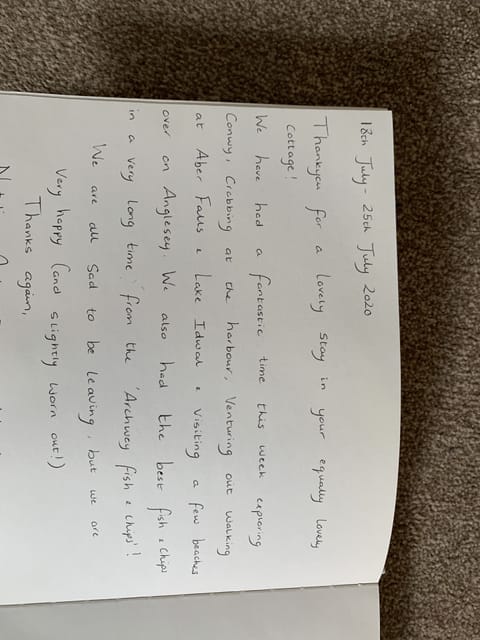 18th July - 25th July 2020
Thankyou for a lovely stay in your equally lovely
cottage!
We have had a fantastic time this week exploring
Conwy, Crabbing at the harbour, Venturing out walking
at Aber Falls & Lake Idwal & visiting a few beaches
over on Anglesey. We also had the best fish & chips
in a very long time from the 'Archway fish & chips'!
We are all sad to be leaving, but we are
Very happy (and slightly worn out!)
Thanks again,